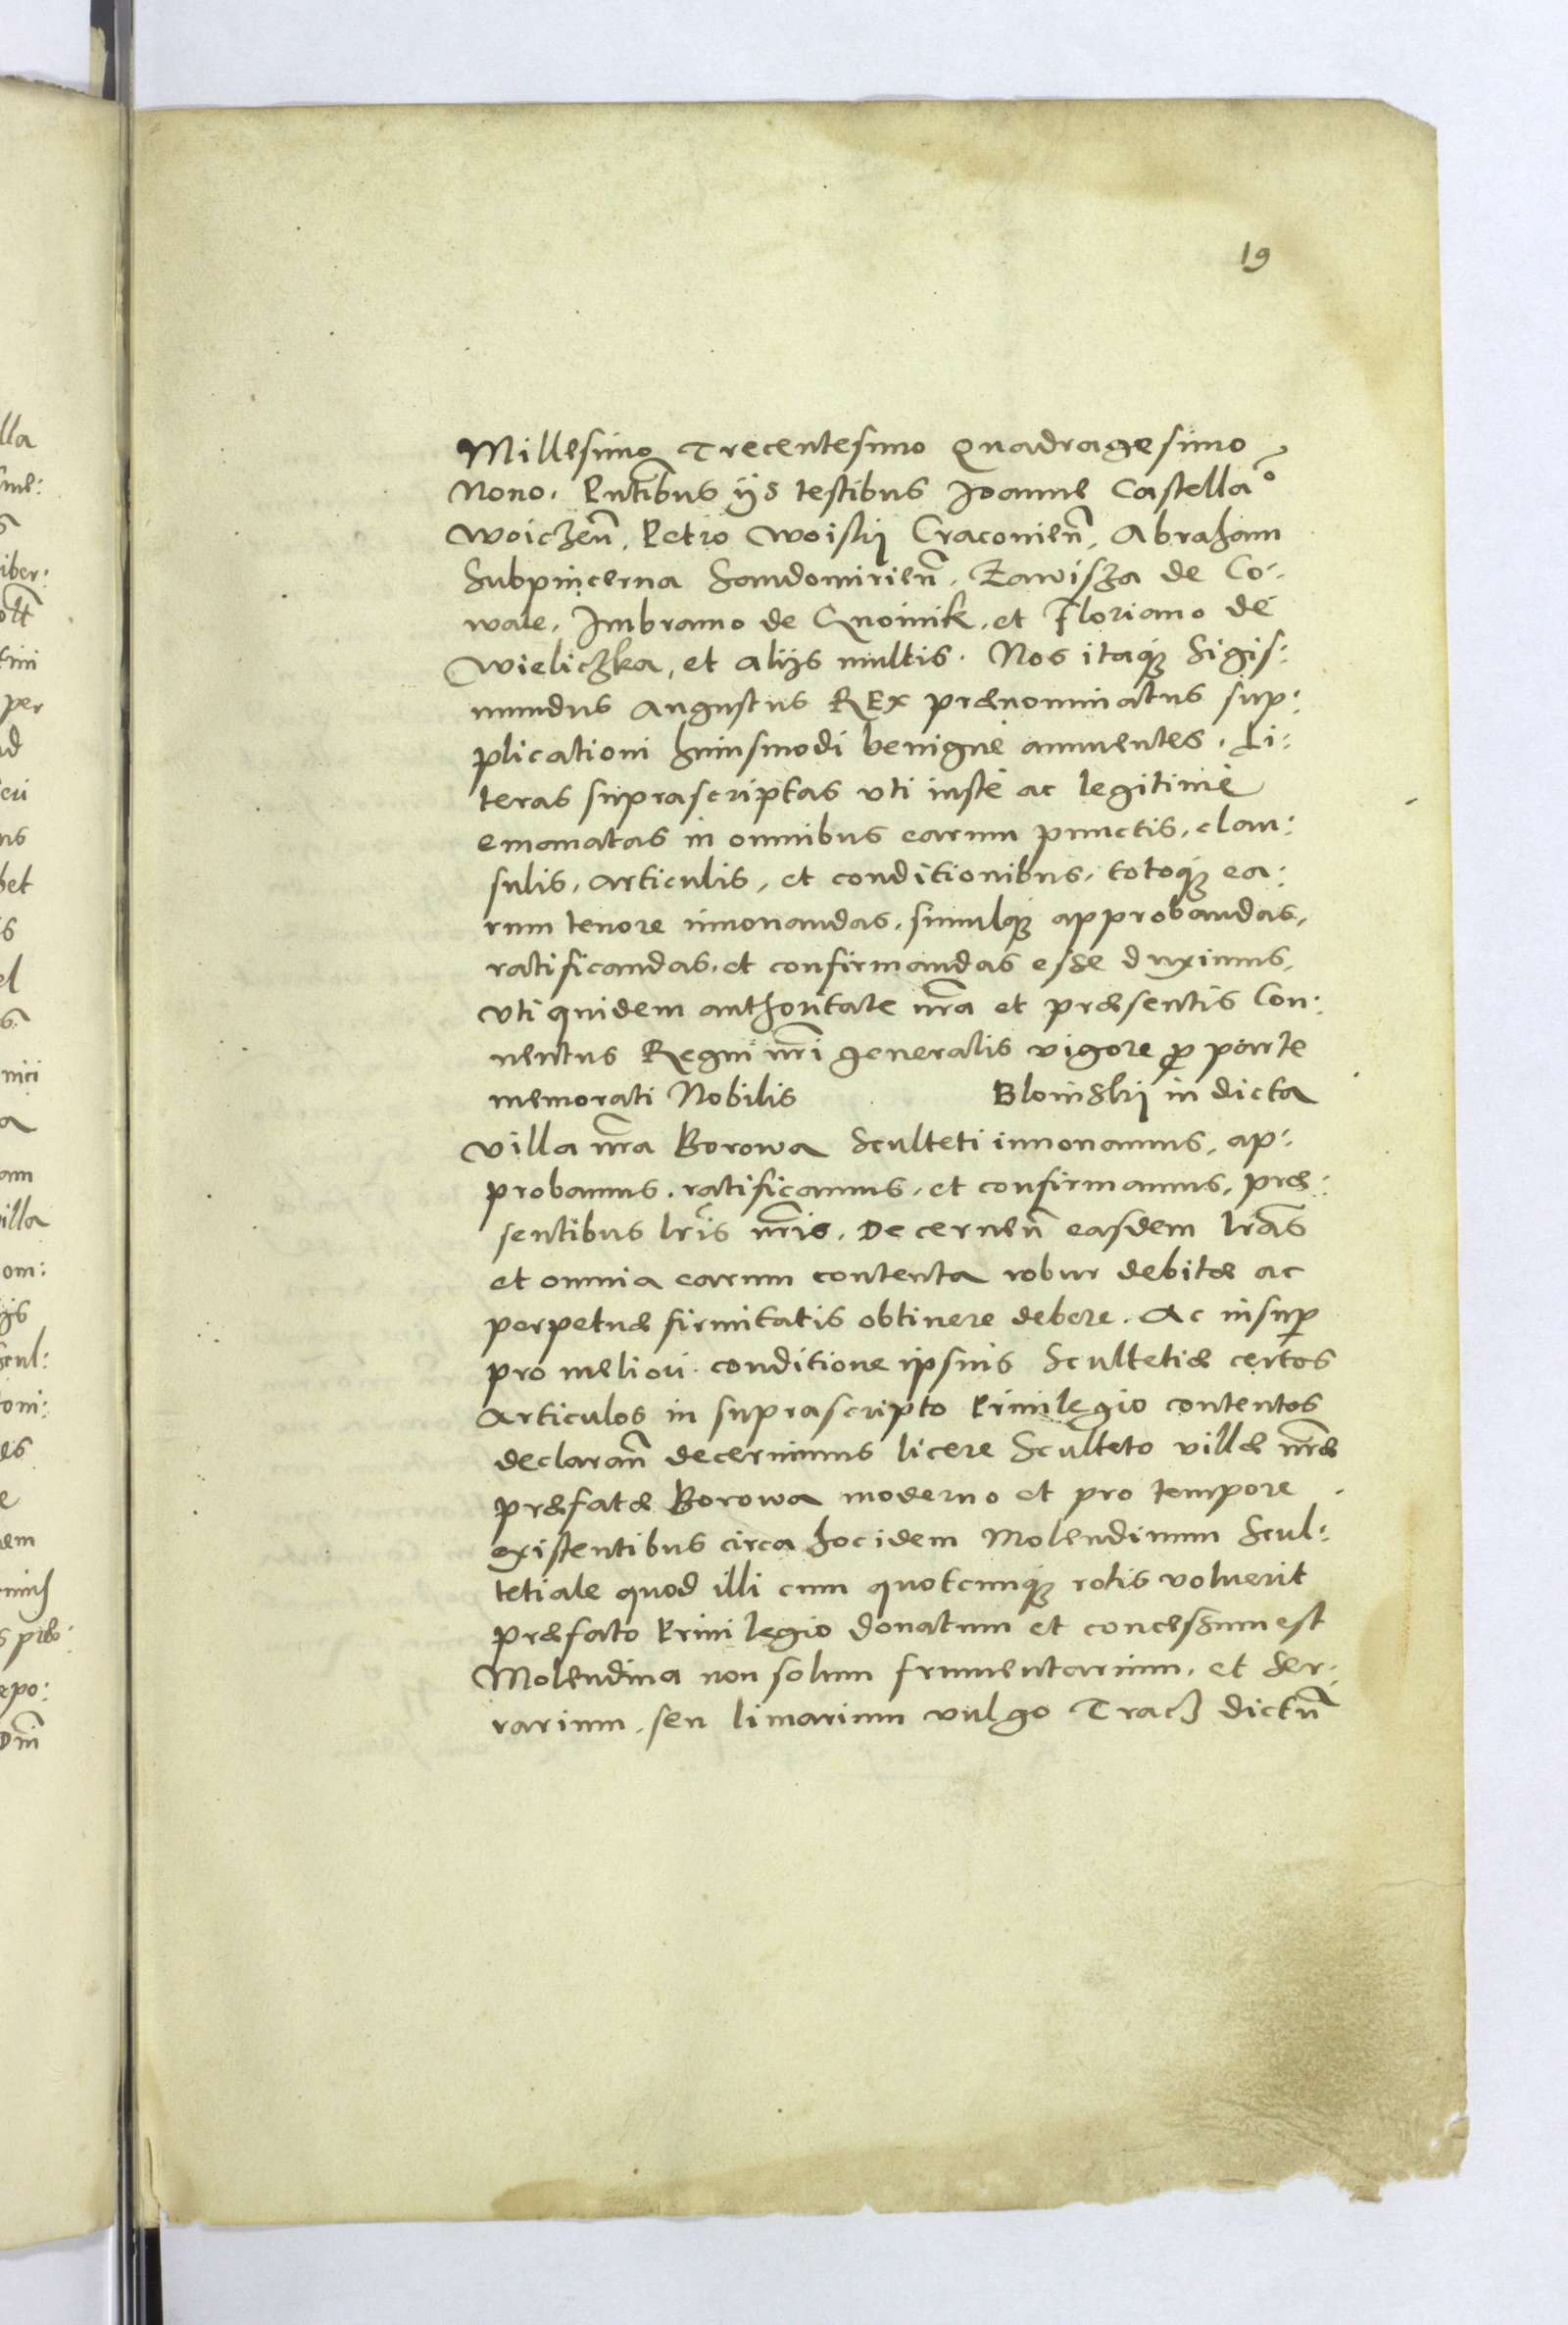 19
Millesimo Trecentesimo Quadragesimo
Nono. Pñtibus ijs testibus Joanne Castellão
Woiczeñ. Petro Woiskij Cracovieñ, Abraham
Subpincerna Sandomirieñ. Zawisza de Co:
wale, Imbramo de Gnoinik, et Floriano de
Wieliczka, et alijs multis. Nos itaq; Sigis:
mundus Augustus REX prænominatus sup:
plicationi huiusmodi benignè annuentes. Li:
teras suprascriptas vti iustè ac legitimè
emanatas in omnibus earum punctis, clau:
sulis, articulis, et conditionibus, totoq; ea:
rum tenore innouandas, simulq; approbandas,
ratificandas, et confirmandas esse duximus,
vti quidem authoritate nr̃a et præsentis Con:
uentus Regni nr̃i generalis vigore p parte
memorati Nobilis Bloinskij in dicta
villa nr̃a Borowa Sculteti innouamus, ap:
probamus, ratificamus, et confirmamus, præ:
sentibus lr̃is nr̃is. Decerneñ easdem lr̃as
et omnia earum contenta robur debitæ ac
perpetuæ firmitatis obtinere debere. Ac insup
pro meliori conditione ipsius Scultetiæ certos
Articulos in suprascripto Priuilegio contentos
declarañ decernimus licere Sculteto villæ nr̃æ
præfatæ Borowa moderno et pro tempore
existentibus circa hoc idem Molendinum Scul:
tetiale quod illi cum quotcunq; rotis voluerit
præfato Priuilegio donatum et concessum est
Molendina non solum frumentarium, et ser:
rarium, seu limarium vulgo Tracz dictũ
lla
iber:
per
bet
el
nici
a
am
villa
om:
Scul:
e
em
epo: